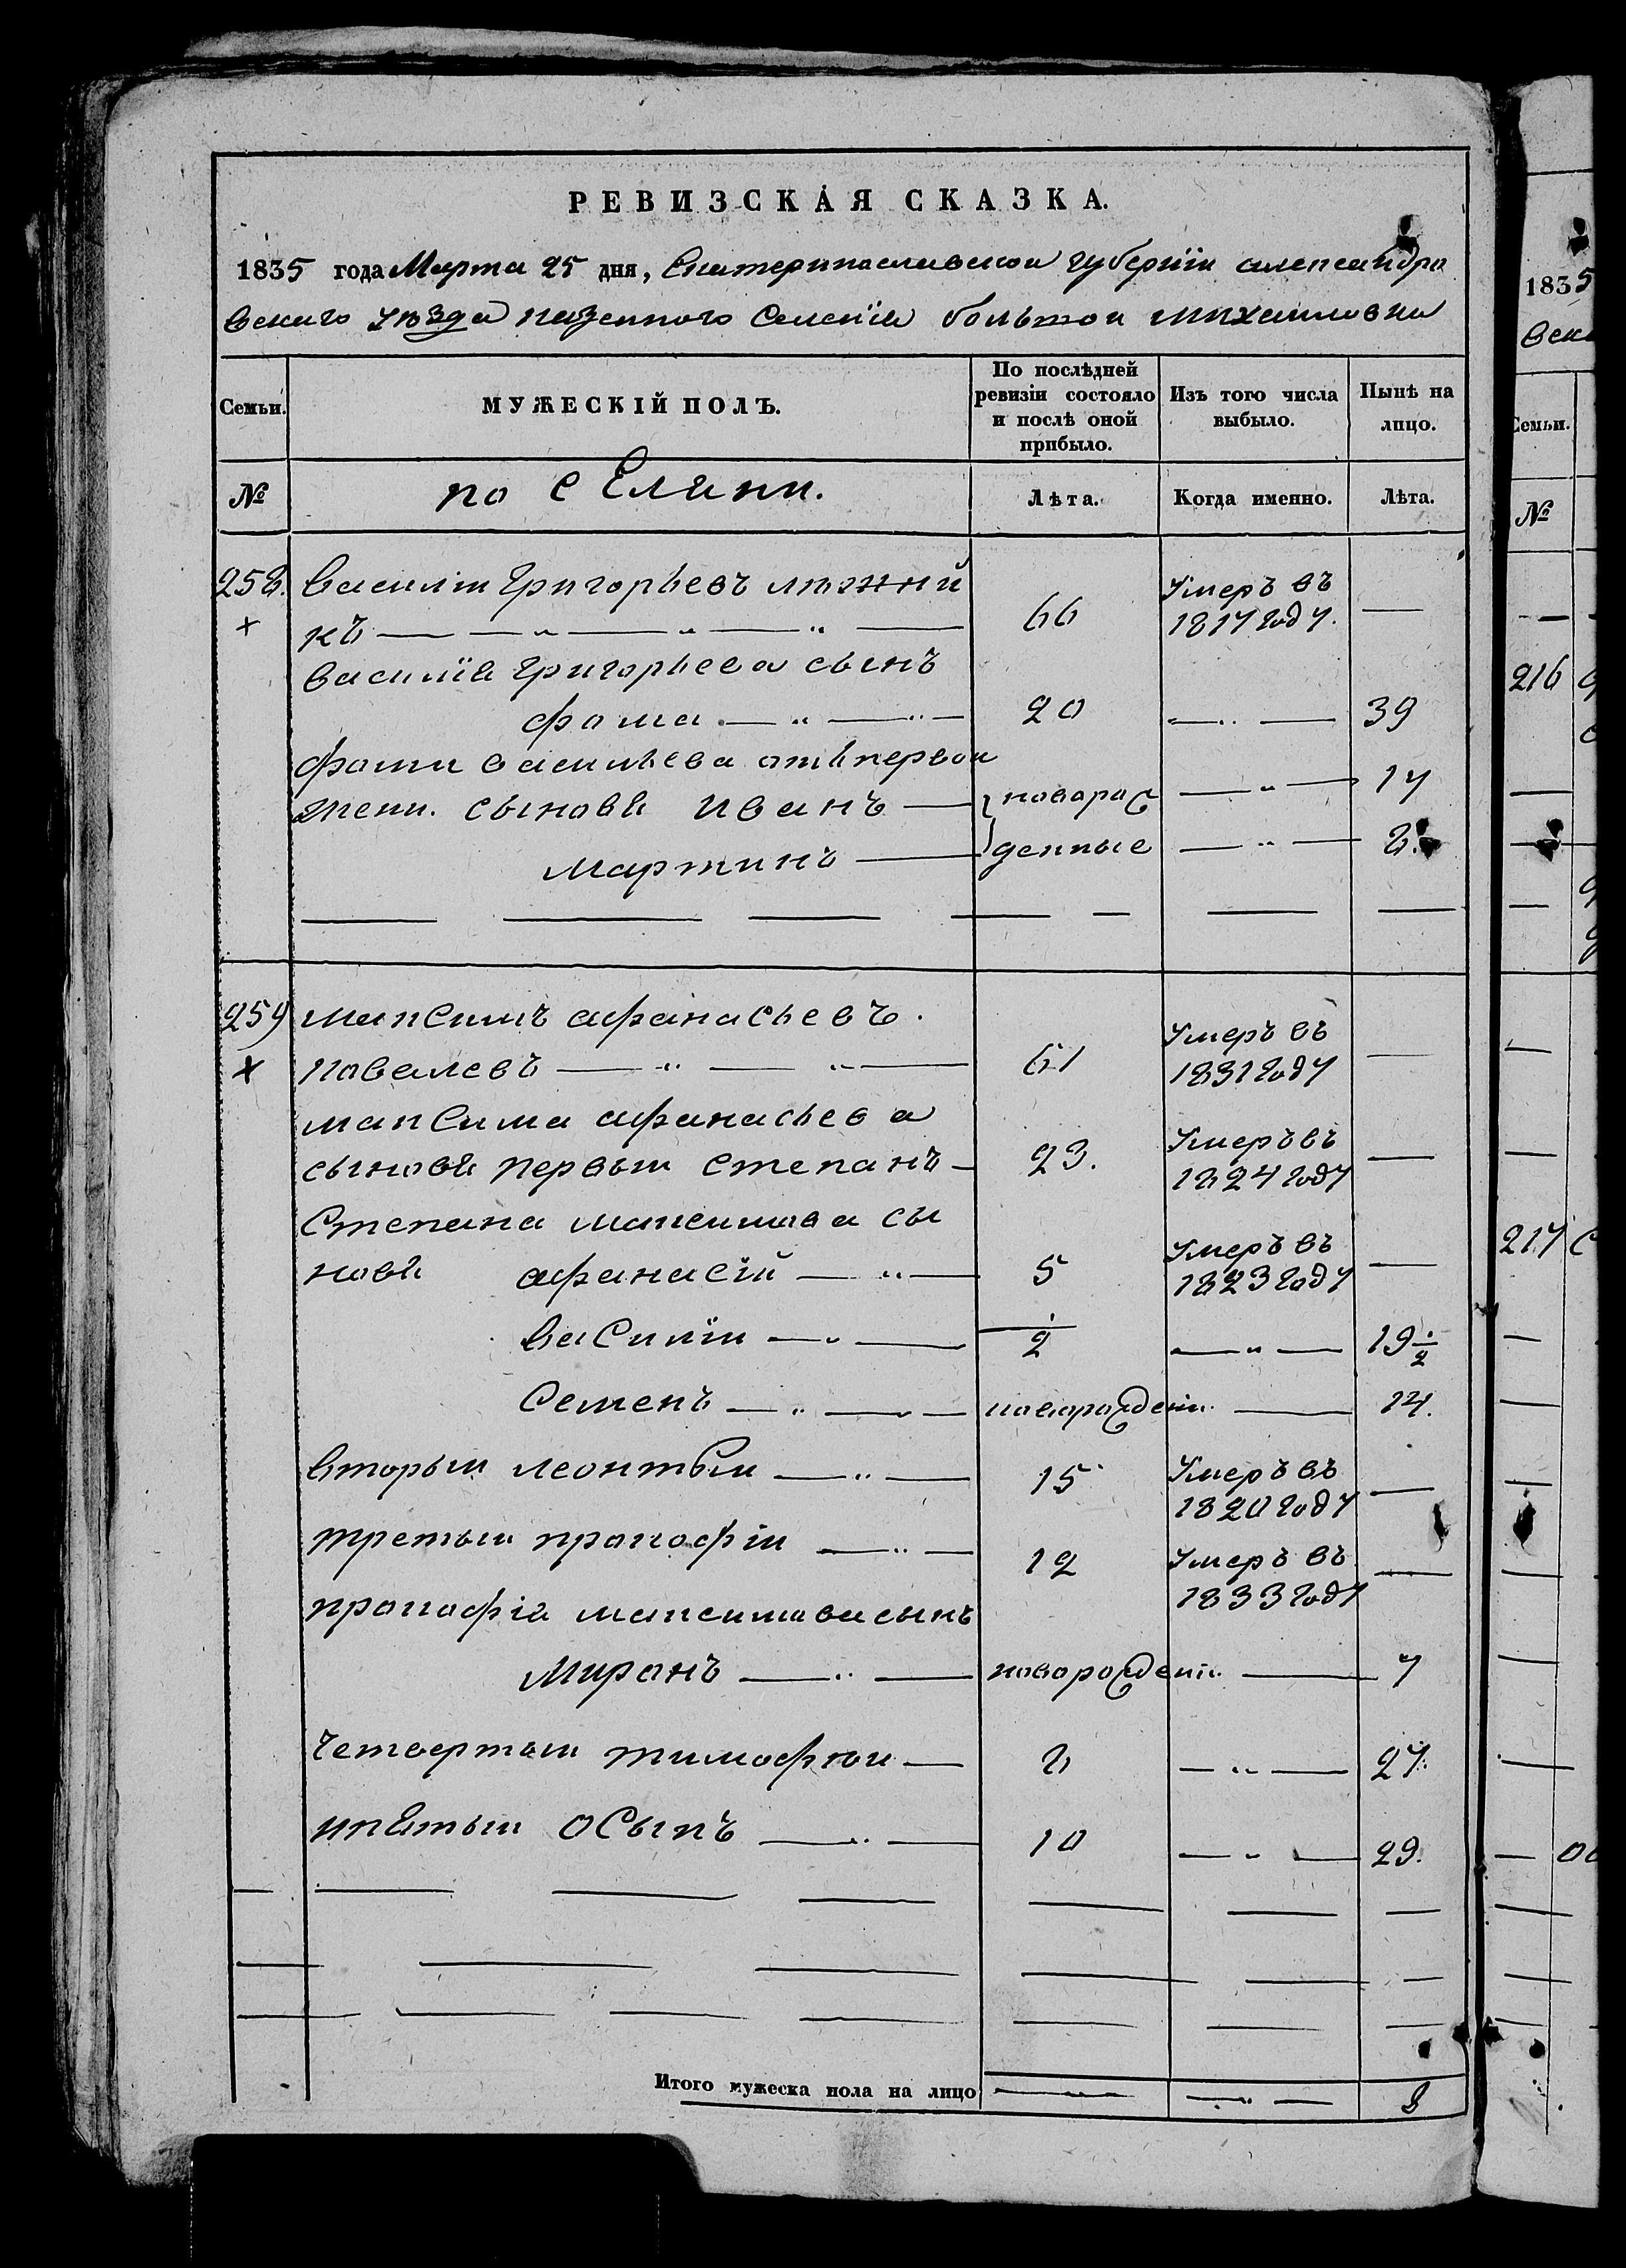 РЕВИЗСКАЯ СКАЗКА.
1835 года Марта 25 дня, Екатеринославской губернїи александро
вскаго уѣзда казенного Селенїя большой михайловки
Семьи. МУЖЕСКІЙ ПОЛЪ. По послѣдней ревизіи состояло и послѣ оной прибыло. Изъ того числа выбыло. Нынѣ на лицо.
№ Лѣта. Когда именно. Лѣта.
258. василіи григорьевъ
къ 66 Умеръ въ 1817 году.
василія григорьева сынъ
фома 20 39
фомы васильева отъ первои
жены. сыновя иванъ новорож 17
мартинъ денные 8.
259 максимъ афанасьевъ.
ковалевъ 61 Умеръ въ 1831 году
максима афанасьева
сыновя первыи степанъ 23. Умеръ въ 1824 году
Степана максимова сы
новя афанасїй 5 Умеръ въ 1823 году
василїи 1/2 19 1/2
Семенъ новорожденны. 14.
вторыи леонтѣи 15 Умеръ въ 1820 году
третьи прокофіи 12 Умеръ въ 1833 году
прокофія максимова сынъ
миронъ новорожденны. 7
четвертыи тимофѣи 8 27.
пятыи осыпъ 10 29.
Итого мужеска пола на лицо 8
1835
вска
Семьи.
№
216
217